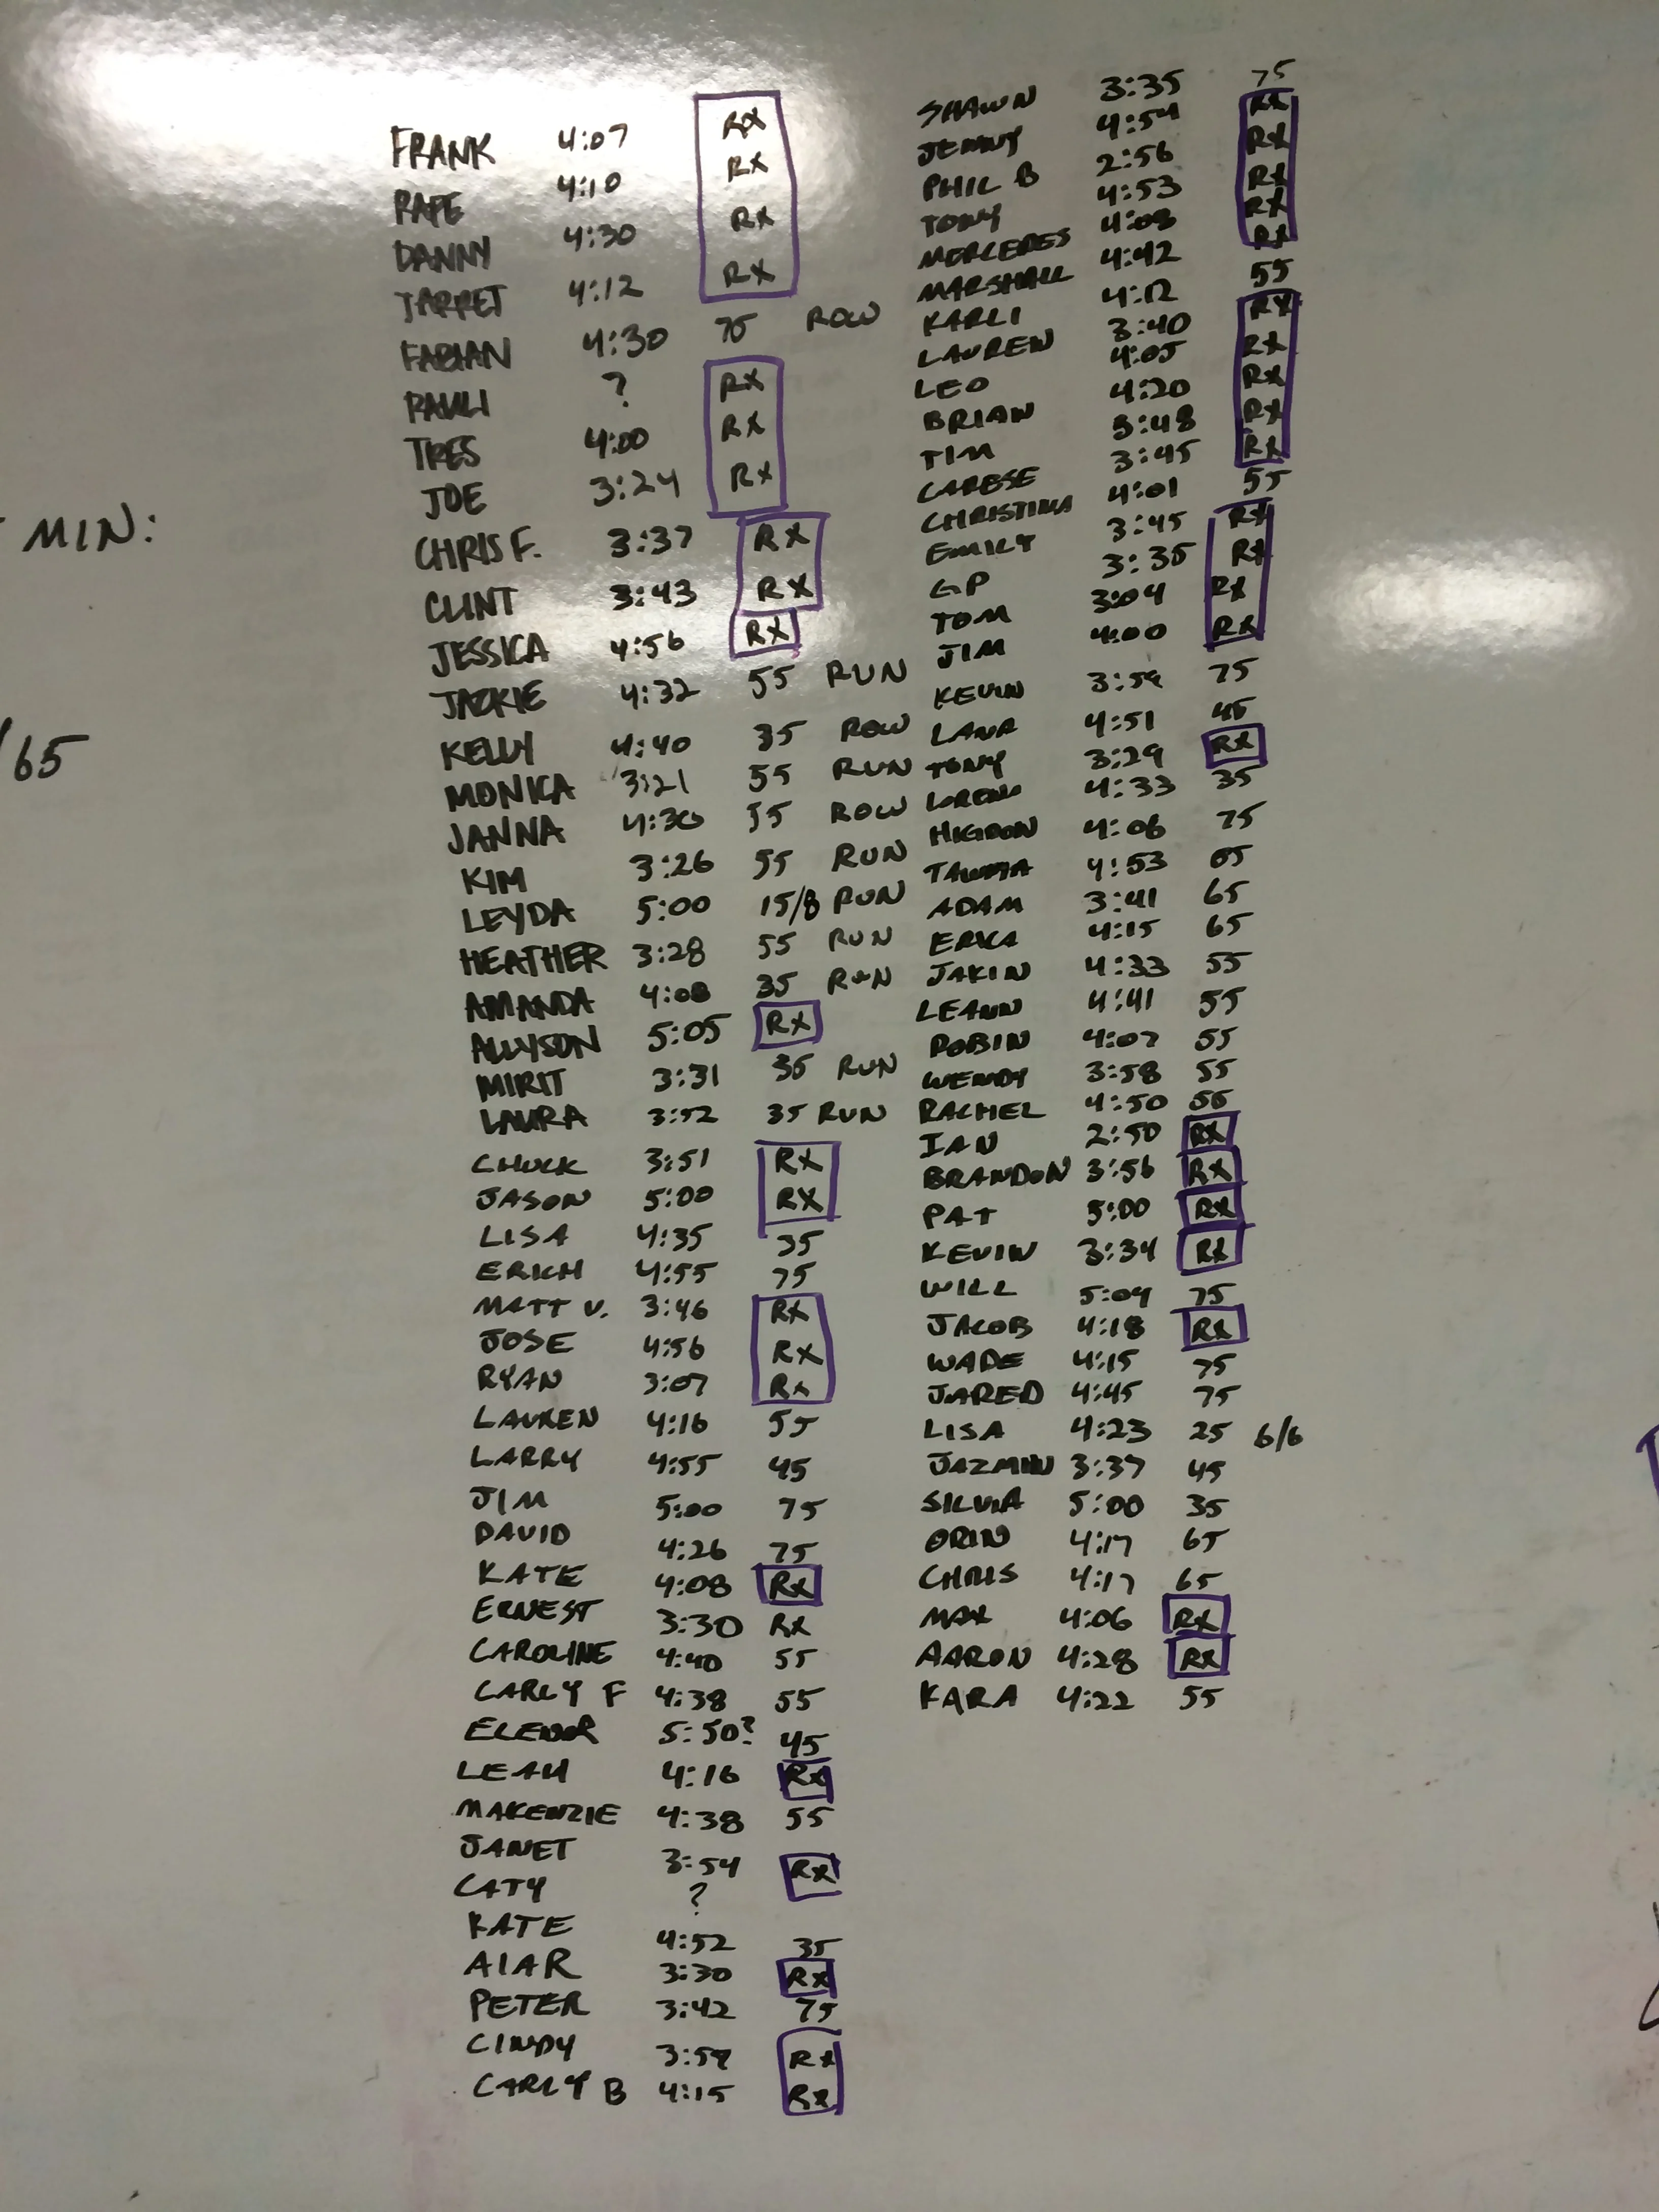 MIN:
65
FRANK 4:07 RX
RAPE 4:10 RX
DANNY 4:30 RX
JARRET 4:12 RX
FABIAN 4:30 75 ROW
PAULI ? RX
TRES 4:00 RX
JOE 3:24 RX
CHRIS F. 3:37 RX
CLINT 3:43 RX
JESSICA 4:56 RX
JACKIE 4:32 55 RUN
KELLY 4:40 35 ROW
MONICA 3:21 55 RUN
JANNA 4:30 55 ROW
KIM 3:26 55 RUN
LEYDA 5:00 15/8 RUN
HEATHER 3:28 55 RUN
AMANDA 4:08 35 RUN
ALLYSON 5:05 RX
MIRIT 3:31 35 RUN
LAURA 3:52 35 RUN
CHUCK 3:51 RX
JASON 5:00 RX
LISA 4:35 35
ERICH 4:55 75
MATT V. 3:46 RX
JOSE 4:56 RX
RYAN 3:07 RX
LAUREN 4:16 55
LARRY 4:55 45
JIM 5:00 75
DAVID 4:26 75
KATE 4:08 RX
ERNEST 3:30 RX
CAROLINE 4:40 55
CARLY F 4:38 55
ELENOR 5:50? 45
LEAH 4:16 RX
MAKENZIE 4:38 55
JANET 3:54 RX
CATY ?
KATE 4:52 35
AIAR 3:30 RX
PETER 3:42 75
CINDY 3:59 RX
CARLY B 4:15 RX
SHAWN 3:35 75
JENNY 4:54 RX
PHIL B 2:56 RX
TONY 4:53 RX
MERCEDES 4:08 RX
MARSHALL 4:42 RX
KARLI 4:12 55
LAUREN 3:40 RX
LEO 4:05 RX
BRIAN 4:20 RX
TIM 3:48 RX
CARESE 3:45 RX
CHRISTINA 4:01 55
EMILY 3:45 RX
GP 3:35 RX
TOM 3:04 RX
JIM 4:00 RX
KEVIN 3:59 75
LANA 4:51 45
TONY 3:29 RX
LORENA 4:33 35
HIGDON 4:06 75
4:53 65
ADAM 3:41 65
ERIKA 4:15 65
JAKIN 4:33 55
LEANN 4:41 55
ROBIN 4:07 55
WENDY 3:58 55
RACHEL 4:50 55
IAN 2:50 RX
BRANDON 3:56 RX
PAT 5:00 RX
KEVIN 3:34 RX
WILL 5:04 75
JACOB 4:18 RX
WADE 4:15 75
JARED 4:45 75
LISA 4:23 25 6/6
JAZMIN 3:37 45
SILVIA 5:00 35
ORIN 4:17 65
CHRIS 4:17 65
MAX 4:06 RX
AARON 4:28 RX
KARA 4:22 55